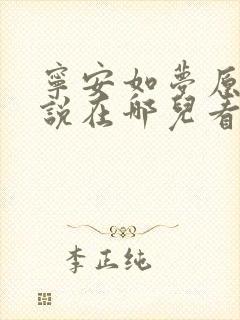 寧安如夢原
說在哪兒看
李正纯